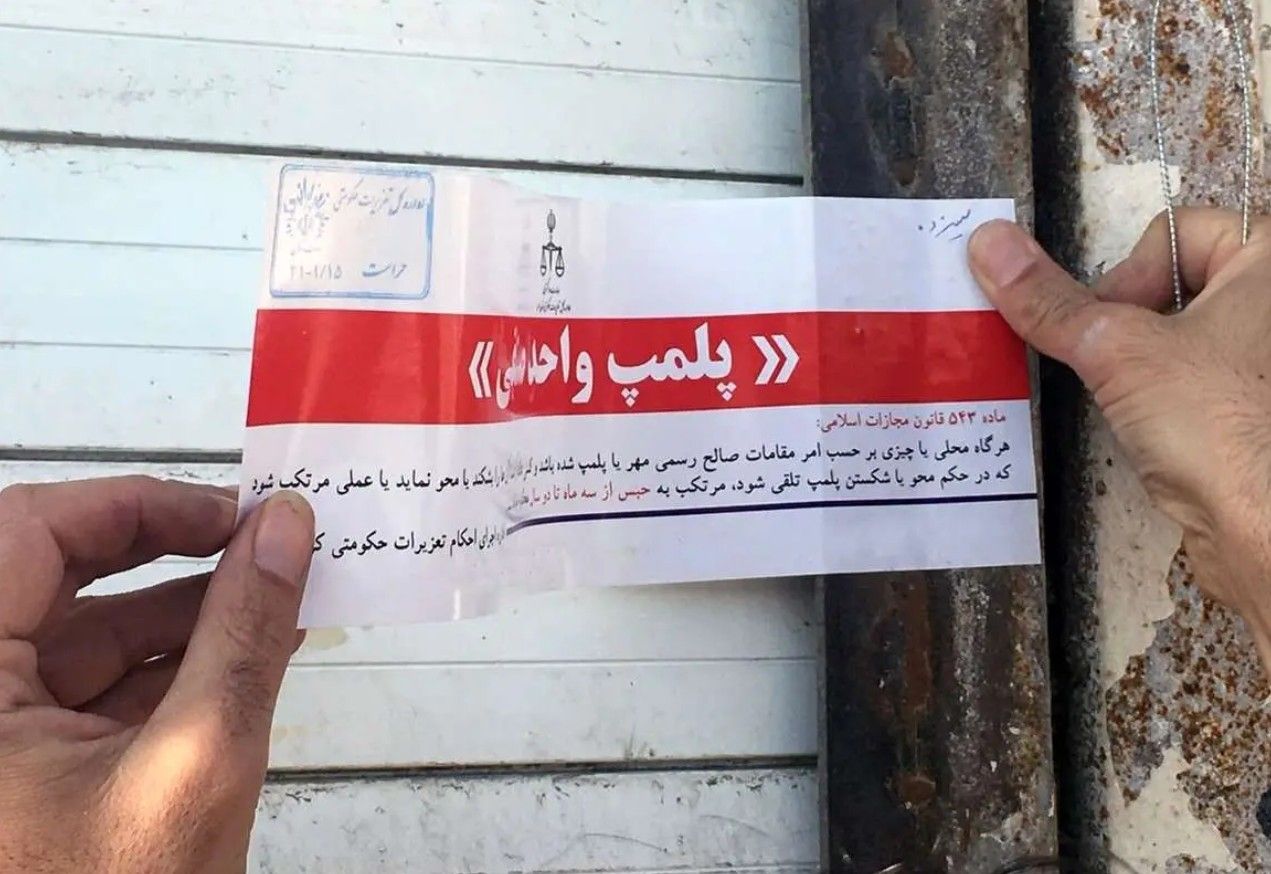 تعزیرات حکومتی
حراست
« پلمپ واحد صنفی »
ماده ۵۴۳ قانون مجازات اسلامی:
هرگاه محلی یا چیزی بر حسب امر مقامات صالح رسمی مهر یا پلمپ شده باشد و کسی را بشکند یا محو نماید یا عملی مرتکب شود
که در حکم محو یا شکستن پلمپ تلقی شود، مرتکب به حبس از سه ماه تا دو سال
اجرای احکام تعزیرات حکومتی